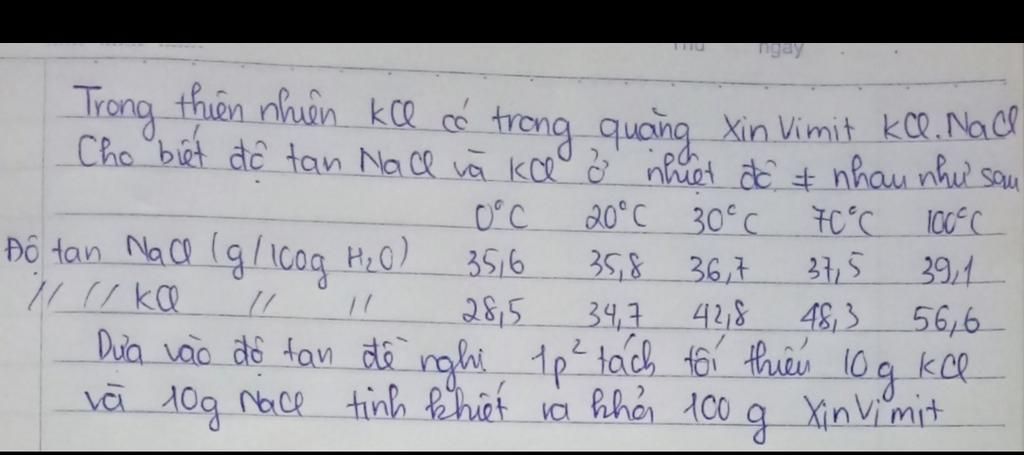 Thứ ngày
Trong thiên nhiên KCl có trong quặng XinVimit KCl.NaCl
Cho biết độ tan NaCl và KCl ở nhiệt độ ≠ nhau như sau
0°C 20°C 30°C 70°C 100°C
Độ tan NaCl (g/100g H₂O) 35,6 35,8 36,7 37,5 39,1
// // KCl // // 28,5 34,7 42,8 48,3 56,6
Dựa vào độ tan đề nghị 1p² tách tối thiểu 10g KCl
và 10g NaCl tinh khiết ra khỏi 100 g XinVimit